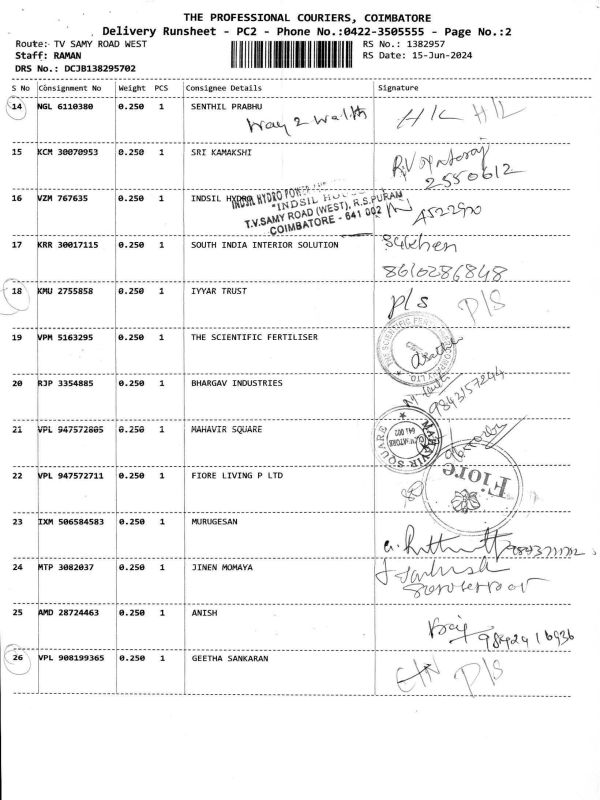 THE PROFESSIONAL COURIERS, COIMBATORE
Delivery Runsheet - PC2 - Phone No.:0422-3505555 - Page No.:2
Route: TV SAMY ROAD WEST RS No.: 1382957
Staff: RAMAN RS Date: 15-Jun-2024
DRS No.: DCJB138295702
S No Consignment No Weight PCS Consignee Details Signature
14 NGL 6110380 0.250 1 SENTHIL PRABHU
way 2 walth
H/L H/L
15 KCM 30070953 0.250 1 SRI KAMAKSHI
2550612
16 VZM 767635 0.250 1 INDSIL HYDRO
INDSIL HYDRO POWER
"INDSIL HOUSE"
T.V.SAMY ROAD (WEST), R.S.PURAM
COIMBATORE - 641 002
4522900
17 KRR 30017115 0.250 1 SOUTH INDIA INTERIOR SOLUTION
8610286848
18 KMU 2755858 0.250 1 IYYAR TRUST
P/S P/S
19 VPM 5163295 0.250 1 THE SCIENTIFIC FERTILISER
THE SCIENTIFIC FERTILISER COMPANY
20 RJP 3354885 0.250 1 BHARGAV INDUSTRIES
9843157244
21 VPL 947572805 0.250 1 MAHAVIR SQUARE
MAHAVIR SQUARE
641 002
22 VPL 947572711 0.250 1 FIORE LIVING P LTD
Fiore
23 IXM 506584583 0.250 1 MURUGESAN
24 MTP 3082037 0.250 1 JINEN MOMAYA
25 AMD 28724463 0.250 1 ANISH
9842416936
26 VPL 908199365 0.250 1 GEETHA SANKARAN
P/S